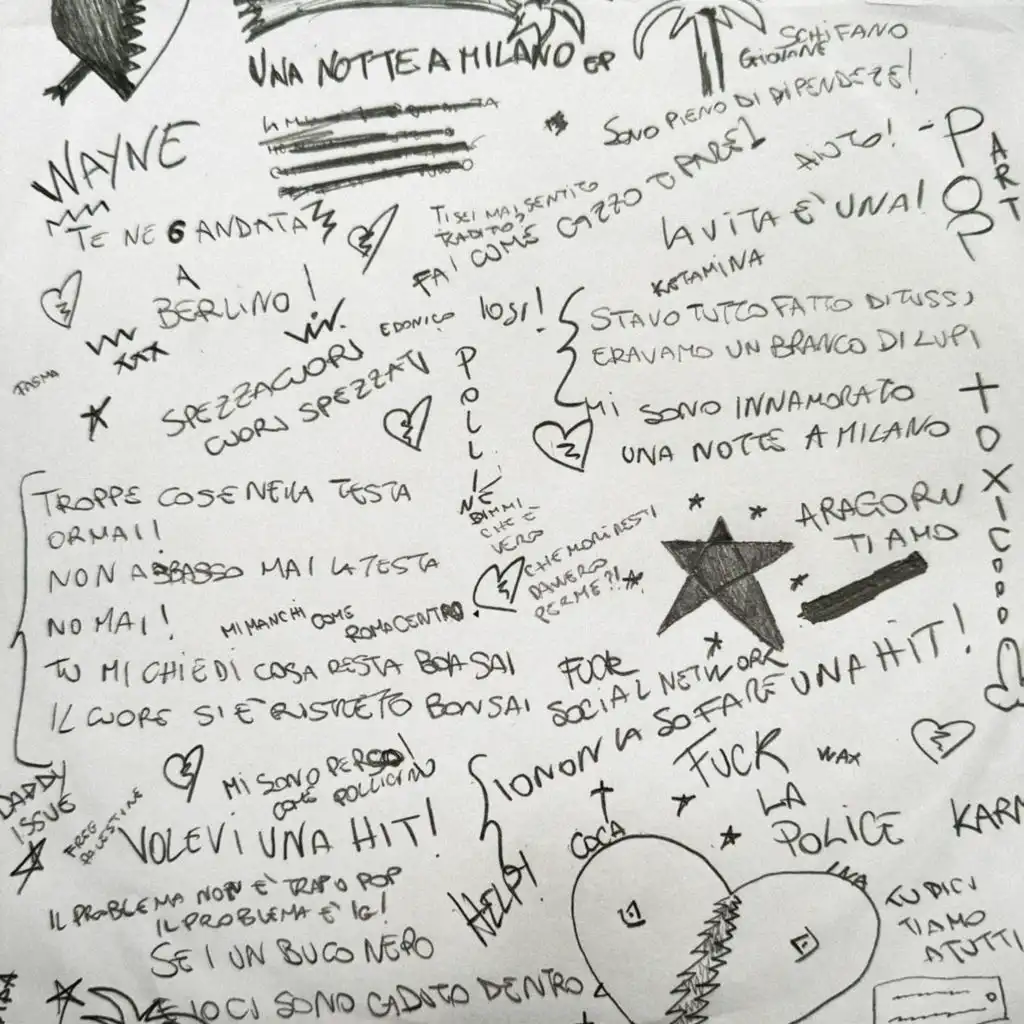 UNA NOTTE A MILANO EP
SCHIFANO
GIOVANE
SONO PIENO DI DIPENDEZE!
AIUTO!
WAYNE
TE NE 6 ANDATA
A
BERLINO!
TI SEI MAI SENTITO
TRADITO?
FAI COME CAZZO TI PARE!
LA VITA È UNA!
POP
ART
KETAMINA
VIV.
EDONICO
XXX
TASMA
SPEZZACUORI
CUORI SPEZZATI
STAVO TUTTO FATTO DI TUSSI
ERAVAMO UN BRANCO DI LUPI
MI SONO INNAMORATO
UNA NOTTE A MILANO
TOXIC
TROPPE COSE NELLA TESTA
ORMAI!
NON ABBASSO MAI LA TESTA
NO MAI!
TU MI CHIEDI COSA RESTA BONSAI
IL CUORE SI È RISTRETO BONSAI
MI MANCHI COME
ROMA CENTRO.
DIMMI
CHE È
VERO
CHE MORIRESTI
DAVVERO
PER ME?!
ARAGORN
TI AMO
FUCK
SOCIAL NETWORK
IO NON LA SO FARE UNA HIT!
FUCK
LA
POLICE
WAX
MI SONO PERSO
COME POLLICINO
DADDY
ISSUE
FREE
PALESTINE
VOLEVI UNA HIT!
IL PROBLEMA NON È TRAP O POP
IL PROBLEMA È IG!
SEI UN BUCO NERO
E IO CI SONO CADUTO DENTRO
HELP!
COCA
KARM
TU DICI
TI AMO
A TUTTI